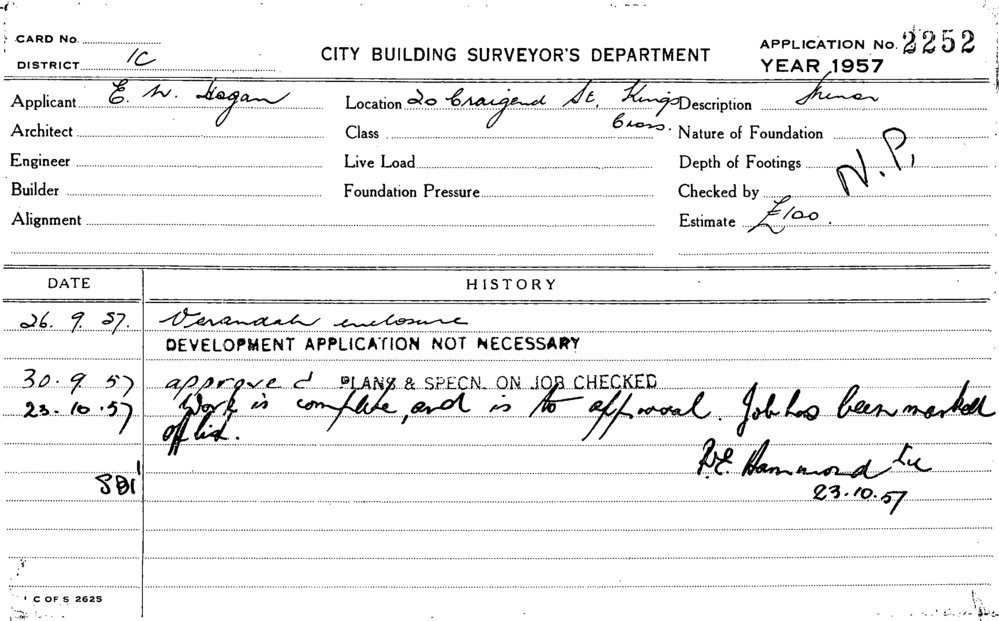 CARD No.
DISTRICT 1C
CITY BUILDING SURVEYOR'S DEPARTMENT
APPLICATION No. 2252
YEAR 1957
Applicant E. W. Hogan
Location 20 Craigend St. Kings Cross.
Description Minor
Architect
Class
Nature of Foundation
Engineer
Live Load
Depth of Footings
N.P.
Builder
Foundation Pressure
Checked by
Alignment
Estimate £100.
DATE HISTORY
26. 9. 57. Verandah enclosure
DEVELOPMENT APPLICATION NOT NECESSARY
30. 9. 57 approved PLANS & SPECN. ON JOB CHECKED
23. 10. 57 Work is complete, and is to approval. Job has been marked
off list.
Hammond
23. 10. 57
C OF S 2625